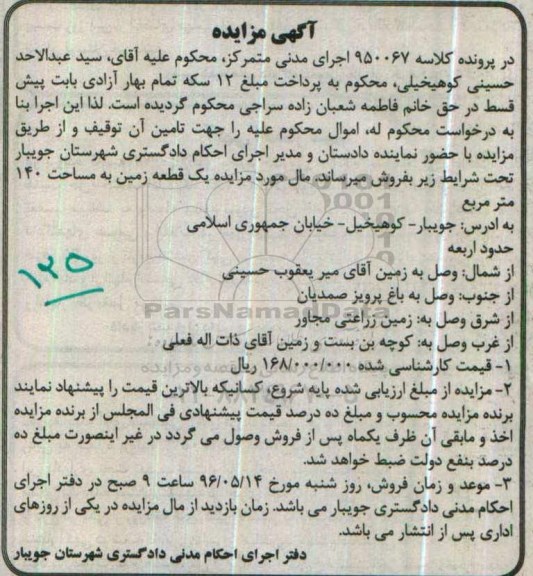 آگهی مزایده
در پرونده کلاسه ۹۵۰۰۶۷ اجرای مدنی متمرکز، محکوم علیه آقای، سید عبدالاحد
حسینی کوهیخیلی، محکوم به پرداخت مبلغ ۱۲ سکه تمام بهار آزادی بابت پیش
قسط در حق خانم فاطمه شعبان زاده سراجی محکوم گردیده است. لذا این اجرا بنا
به درخواست محکوم له، اموال محکوم علیه را جهت تامین آن توقیف و از طریق
مزایده با حضور نماینده دادستان و مدیر اجرای احکام دادگستری شهرستان جویبار
تحت شرایط زیر بفروش میرساند. مال مورد مزایده یک قطعه زمین به مساحت ۱۴۰
متر مربع
به ادرس: جویبار- کوهیخیل- خیابان جمهوری اسلامی
حدود اربعه
از شمال: وصل به زمین آقای میر یعقوب حسینی
از جنوب: وصل به باغ پرویز صمدیان
از شرق وصل به: زمین زراعتی مجاور
از غرب وصل به: کوچه بن بست و زمین آقای ذات اله فعلی
۱- قیمت کارشناسی شده ۱۶۸/۰۰۰/۰۰۰ ریال
۲- مزایده از مبلغ ارزیابی شده پایه شروع کسانیکه بالاترین قیمت را پیشنهاد نمایند
برنده مزایده محسوب و مبلغ ده درصد قیمت پیشنهادی فی المجلس از برنده مزایده
اخذ و مابقی آن ظرف یکماه پس از فروش وصول می گردد در غیر اینصورت مبلغ ده
درصد بنفع دولت ضبط خواهد شد.
۳- موعد و زمان فروش، روز شنبه مورخ ۹۶/۰۵/۱۴ ساعت ۹ صبح در دفتر اجرای
احکام مدنی دادگستری جویبار می باشد. زمان بازدید از مال مزایده در یکی از روزهای
اداری پس از انتشار می باشد.
دفتر اجرای احکام مدنی دادگستری شهرستان جویبار
۱۲۵
ParsNamadData